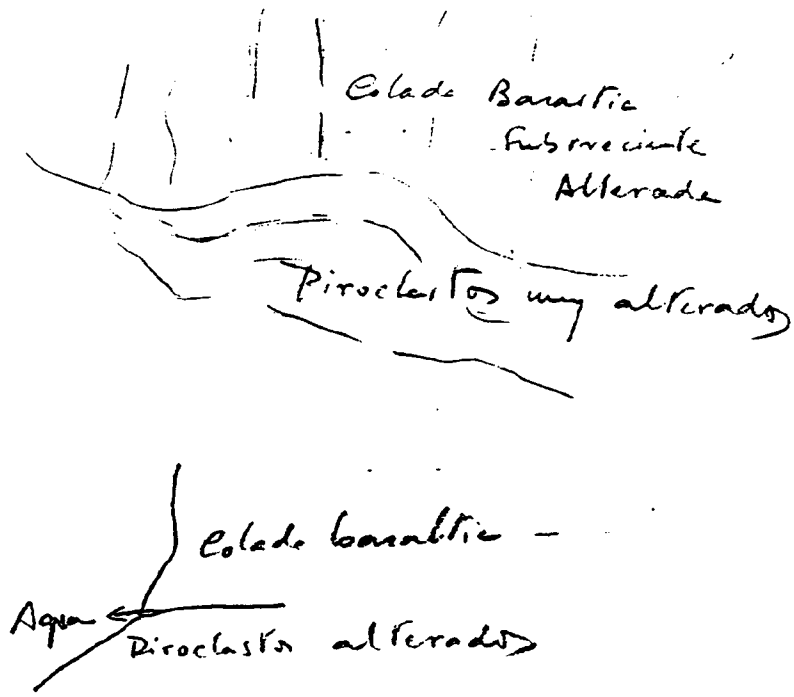 Colada Basaltic
Subreciente
Alterada
Piroclastos muy alterados
Colada basaltic -
Agua
Piroclastos alterados